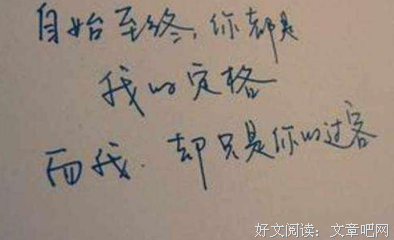 自始至终，你都是
我的定格
而我．却只是你的过客
好文阅读：文章吧网